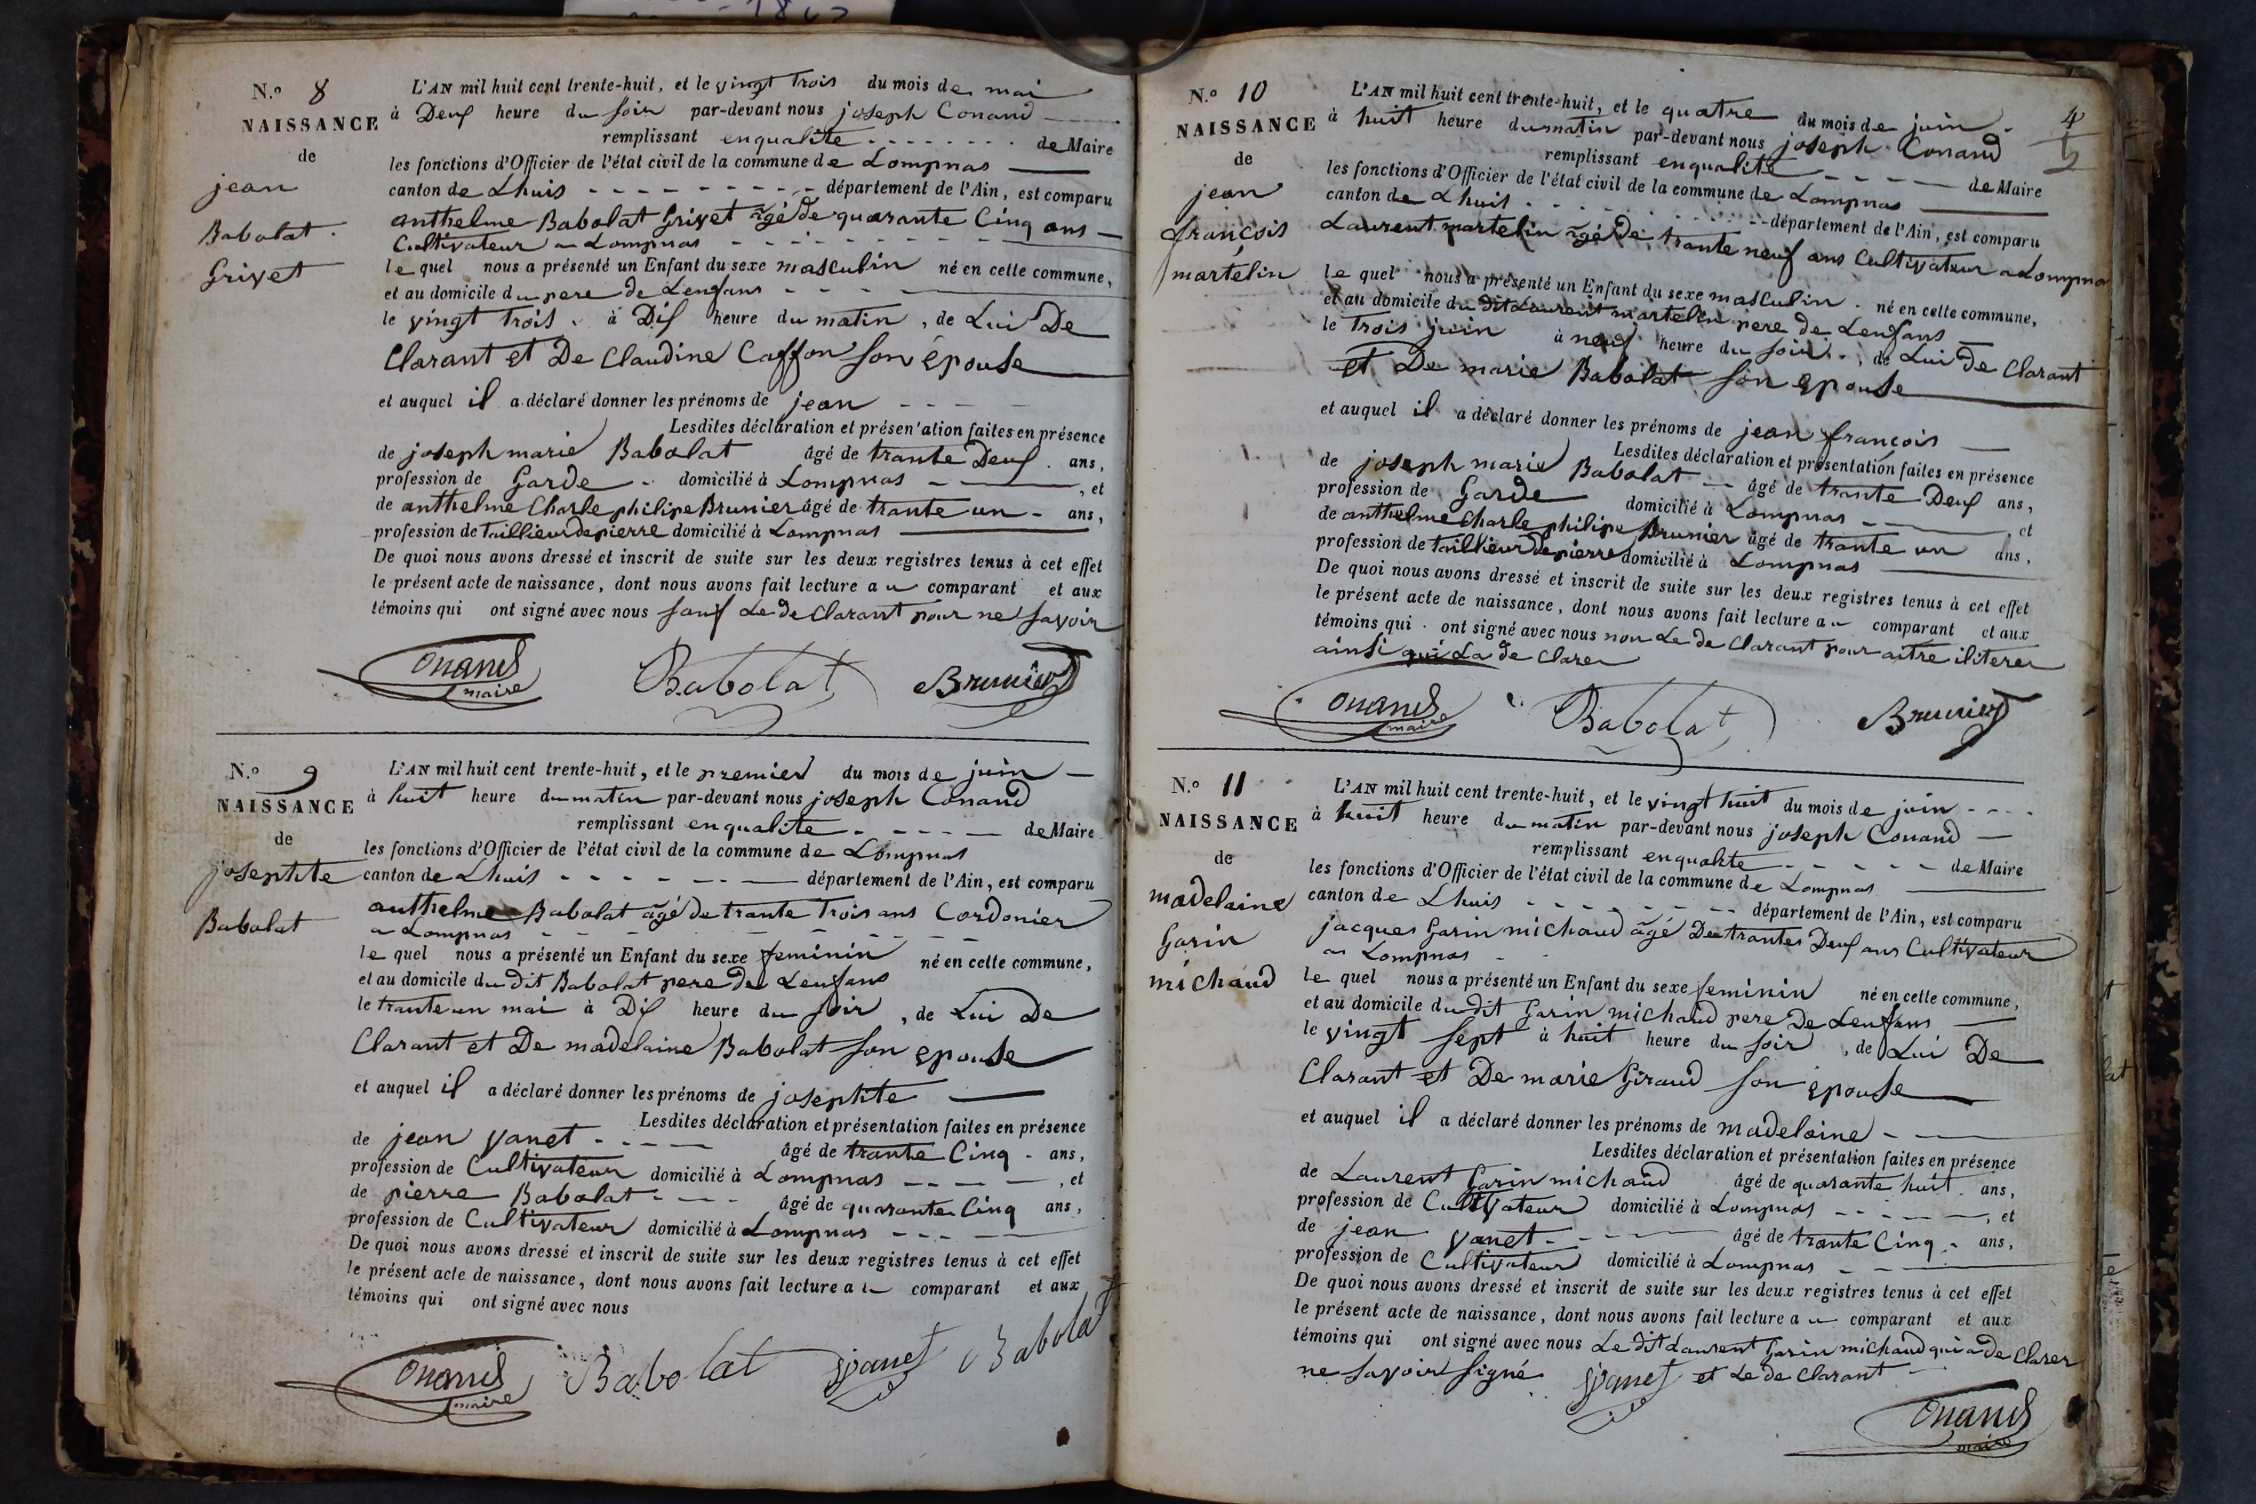 N.o 8
NAISSANCE
de
jean
Babolat
Grivet
L'AN mil huit cent trente-huit, et le vingt trois du mois de mai
à Deux heure du soir par-devant nous joseph Conand
remplissant enqualité de Maire
les fonctions d'Officier de l'état civil de la commune de Lompnas
canton de Lhuis département de l'Ain, est comparu
anthelme Babolat Grivet âgé de quarante Cinq ans
Cultivateur a Lompnas
le quel nous a présenté un Enfant du sexe masculin né en cette commune,
et au domicile du pere de Lenfans
le vingt trois à Dix heure du matin, de Lui De
Clarant et De Claudine Caffon son épouse
et auquel il a déclaré donner les prénoms de jean
Lesdites déclaration et présen'ation faites en présence
de joseph marie Babolat âgé de trante Deux ans,
profession de Garde domicilié à Lompnas, et
de anthelme Charle philipe Brunier âgé de trante un ans,
profession de taillieur de pierre domicilié à Lompnas
De quoi nous avons dressé et inscrit de suite sur les deux registres tenus à cet effet
le présent acte de naissance, dont nous avons fait lecture au comparant et aux
témoins qui ont signé avec nous sauf Le de Clarant pour ne savoir
Conand Babolat Brunier
maire
N.o 9
NAISSANCE
de
josephte
Babolat
L'AN mil huit cent trente-huit, et le premier du mois de juin
à huit heure du matin par-devant nous joseph Conand
remplissant enqualité de Maire
les fonctions d'Officier de l'état civil de la commune de Lompnas
canton de Lhuis département de l'Ain, est comparu
anthelme Babolat âgé de trante trois ans Cordonier
a Lompnas
le quel nous a présenté un Enfant du sexe feminin né en cette commune,
et au domicile du dit Babolat pere de Lenfans
le trante un mai à Dix heure du soir, de Lui De
Clarant et De madelaine Babolat son epouse
et auquel il a déclaré donner les prénoms de josephte
Lesdites déclaration et présentation faites en présence
de jean yanet âgé de trante Cinq ans,
profession de Cultivateur domicilié à Lompnas, et
de pierre Babolat âgé de quarante Cinq ans,
profession de Cultivateur domicilié à Lompnas
De quoi nous avons dressé et inscrit de suite sur les deux registres tenus à cet effet
le présent acte de naissance, dont nous avons fait lecture au comparant et aux
témoins qui ont signé avec nous
Conand Babolat yanet Babolat
maire
4
N.o 10
NAISSANCE
de
jean
françois
martelin
L'AN mil huit cent trente-huit, et le quatre du mois de juin
à huit heure du matin par-devant nous joseph Conand
remplissant enqualité de Maire
les fonctions d'Officier de l'état civil de la commune de Lompnas
canton de Lhuis département de l'Ain, est comparu
Laurent martelin âgé de trante neuf ans Cultivateur a Lompna
le quel nous a présenté un Enfant du sexe masculin né en cette commune,
et au domicile du dit Laurent martelin pere de Lenfans
le trois juin à neuf heure du soir, de Lui De Clarant
et De marie Babolat son epouse
et auquel il a déclaré donner les prénoms de jean françois
Lesdites déclaration et présentation faites en présence
de joseph marie Babolat âgé de trante Deux ans,
profession de Garde domicilié à Lompnas et
de anthelme Charle philipe Brunier âgé de trante un ans,
profession de taillieur de pierre domicilié à Lompnas
De quoi nous avons dressé et inscrit de suite sur les deux registres tenus à cet effet
le présent acte de naissance, dont nous avons fait lecture au comparant et aux
témoins qui ont signé avec nous non Le de Clarant pour aitre iliterer
ainsi qui La de Clarer
Conand Babolat Brunier
maire
N.o 11
NAISSANCE
de
madelaine
Garin
michaud
L'AN mil huit cent trente-huit, et le vingt huit du mois de juin
à huit heure du matin par-devant nous joseph Conand
remplissant enqualité de Maire
les fonctions d'Officier de l'état civil de la commune de Lompnas
canton de Lhuis département de l'Ain, est comparu
jacques Garin michaud âgé De trante Deux ans Cultivateur
a Lompnas
le quel nous a présenté un Enfant du sexe feminin né en cette commune,
et au domicile du dit Garin michaud pere De Lenfans
le vingt sept à huit heure du soir, de Lui De
Clarant et De marie Giraud son epouse
et auquel il a déclaré donner les prénoms de madelaine
Lesdites déclaration et présentation faites en présence
de Laurent Garin michaud âgé de quarante huit ans,
profession de Cultivateur domicilié à Lompnas, et
de jean yanet âgé de trante Cinq ans,
profession de Cultivateur domicilié à Lompnas
De quoi nous avons dressé et inscrit de suite sur les deux registres tenus à cet effet
le présent acte de naissance, dont nous avons fait lecture au comparant et aux
témoins qui ont signé avec nous Le dit Laurent Garin michaud qui a de Clarer
ne savoir signé yanet et Le de Clarant
Conand
maire